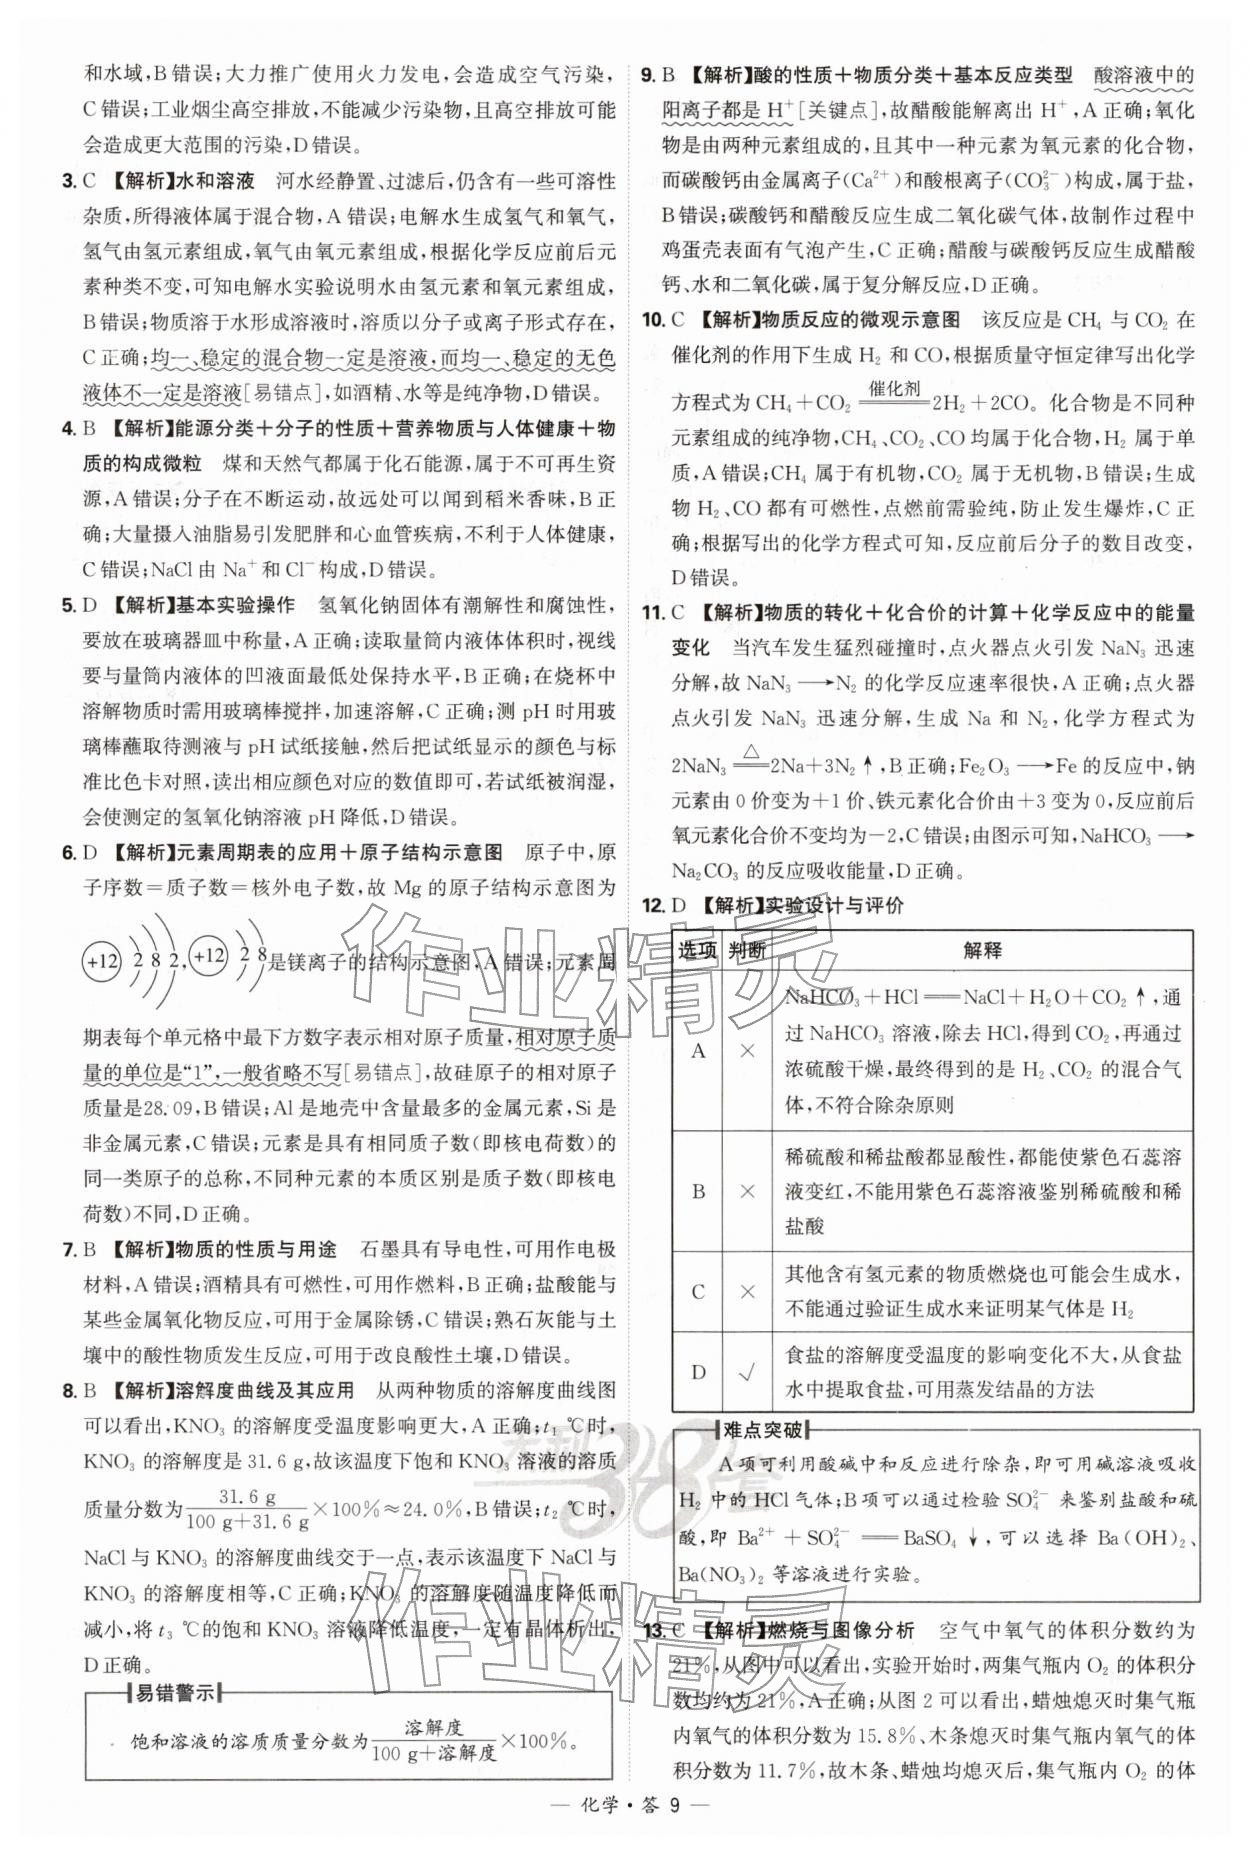 和水域,B错误;大力推广使用火力发电,会造成空气污染,
C错误;工业烟尘高空排放,不能减少污染物,且高空排放可能
会造成更大范围的污染,D错误。
3. C 【解析】水和溶液 河水经静置、过滤后,仍含有一些可溶性
杂质,所得液体属于混合物,A错误;电解水生成氢气和氧气,
氢气由氢元素组成,氧气由氧元素组成,根据化学反应前后元
素种类不变,可知电解水实验说明水由氢元素和氧元素组成,
B错误;物质溶于水形成溶液时,溶质以分子或离子形式存在,
C正确;均一、稳定的混合物一定是溶液,而均一、稳定的无色
液体不一定是溶液[易错点],如酒精、水等是纯净物,D错误。
4. B 【解析】能源分类+分子的性质+营养物质与人体健康+物
质的构成微粒 煤和天然气都属于化石能源,属于不可再生资
源,A错误;分子在不断运动,故远处可以闻到稻米香味,B正
确;大量摄入油脂易引发肥胖和心血管疾病,不利于人体健康,
C错误;NaCl由Na⁺和Cl⁻构成,D错误。
5. D 【解析】基本实验操作 氢氧化钠固体有潮解性和腐蚀性,
要放在玻璃器皿中称量,A正确;读取量筒内液体体积时,视线
要与量筒内液体的凹液面最低处保持水平,B正确;在烧杯中
溶解物质时需用玻璃棒搅拌,加速溶解,C正确;测pH时用玻
璃棒蘸取待测液与pH试纸接触,然后把试纸显示的颜色与标
准比色卡对照,读出相应颜色对应的数值即可,若试纸被润湿,
会使测定的氢氧化钠溶液pH降低,D错误。
6. D 【解析】元素周期表的应用+原子结构示意图 原子中,原
子序数=质子数=核外电子数,故Mg的原子结构示意图为
+12 2 8 2, +12 2 8 是镁离子的结构示意图,A错误;元素周
期表每个单元格中最下方数字表示相对原子质量,相对原子质
量的单位是“1”,一般省略不写[易错点],故硅原子的相对原子
质量是28.09,B错误;Al是地壳中含量最多的金属元素,Si是
非金属元素,C错误;元素是具有相同质子数(即核电荷数)的
同一类原子的总称,不同种元素的本质区别是质子数(即核电
荷数)不同,D正确。
7. B 【解析】物质的性质与用途 石墨具有导电性,可用作电极
材料,A错误;酒精具有可燃性,可用作燃料,B正确;盐酸能与
某些金属氧化物反应,可用于金属除锈,C错误;熟石灰能与土
壤中的酸性物质发生反应,可用于改良酸性土壤,D错误。
8. B 【解析】溶解度曲线及其应用 从两种物质的溶解度曲线图
可以看出,KNO₃的溶解度受温度影响更大,A正确;t₁ ℃时,
KNO₃的溶解度是31.6 g,故该温度下饱和KNO₃溶液的溶质
质量分数为31.6 g/(100 g+31.6 g)×100%≈24.0%,B错误;t₂ ℃时,
NaCl与KNO₃的溶解度曲线交于一点,表示该温度下NaCl与
KNO₃的溶解度相等,C正确;KNO₃的溶解度随温度降低而
减小,将t₃ ℃的饱和KNO₃溶液降低温度,一定有晶体析出,
D正确。
易错警示
饱和溶液的溶质质量分数为溶解度/(100 g+溶解度)×100%。
9. B 【解析】酸的性质+物质分类+基本反应类型 酸溶液中的
阳离子都是H⁺[关键点],故醋酸能解离出H⁺,A正确;氧化
物是由两种元素组成的,且其中一种元素为氧元素的化合物,
而碳酸钙由金属离子(Ca²⁺)和酸根离子(CO₃²⁻)构成,属于盐,
B错误;碳酸钙和醋酸反应生成二氧化碳气体,故制作过程中
鸡蛋壳表面有气泡产生,C正确;醋酸与碳酸钙反应生成醋酸
钙、水和二氧化碳,属于复分解反应,D正确。
10. C 【解析】物质反应的微观示意图 该反应是CH₄与CO₂在
催化剂的作用下生成H₂和CO,根据质量守恒定律写出化学
方程式为CH₄+CO₂ ══催化剂══ 2H₂+2CO。化合物是不同种
元素组成的纯净物,CH₄、CO₂、CO均属于化合物,H₂属于单
质,A错误;CH₄属于有机物,CO₂属于无机物,B错误;生成
物H₂、CO都有可燃性,点燃前需验纯,防止发生爆炸,C正
确;根据写出的化学方程式可知,反应前后分子的数目改变,
D错误。
11. C 【解析】物质的转化+化合价的计算+化学反应中的能量
变化 当汽车发生猛烈碰撞时,点火器点火引发NaN₃迅速
分解,故NaN₃→N₂的化学反应速率很快,A正确;点火器
点火引发NaN₃迅速分解,生成Na和N₂,化学方程式为
2NaN₃ ══△══ 2Na+3N₂↑,B正确;Fe₂O₃→Fe的反应中,钠
元素由0价变为+1价、铁元素化合价由+3变为0,反应前后
氧元素化合价不变均为-2,C错误;由图示可知,NaHCO₃→
Na₂CO₃的反应吸收能量,D正确。
12. D 【解析】实验设计与评价
选项 判断 解释
A × NaHCO₃+HCl══NaCl+H₂O+CO₂↑,通
过NaHCO₃溶液,除去HCl,得到CO₂,再通过
浓硫酸干燥,最终得到的是H₂、CO₂的混合气
体,不符合除杂原则
B × 稀硫酸和稀盐酸都显酸性,都能使紫色石蕊溶
液变红,不能用紫色石蕊溶液鉴别稀硫酸和稀
盐酸
C × 其他含有氢元素的物质燃烧也可能会生成水,
不能通过验证生成水来证明某气体是H₂
D √ 食盐的溶解度受温度的影响变化不大,从食盐
水中提取食盐,可用蒸发结晶的方法
难点突破
A项可利用酸碱中和反应进行除杂,即可用碱溶液吸收
H₂中的HCl气体;B项可以通过检验SO₄²⁻来鉴别盐酸和硫
酸,即Ba²⁺+SO₄²⁻══BaSO₄↓,可以选择Ba(OH)₂、
Ba(NO₃)₂等溶液进行实验。
13. C 【解析】燃烧与图像分析 空气中氧气的体积分数约为
21%,从图中可以看出,实验开始时,两集气瓶内O₂的体积分
数均约为21%,A正确;从图2可以看出,蜡烛熄灭时集气瓶
内氧气的体积分数为15.8%、木条熄灭时集气瓶内氧气的体
积分数为11.7%,故木条、蜡烛均熄灭后,集气瓶内O₂的体
— 化学·答 9 —
作业精灵
天利38套
作业精灵